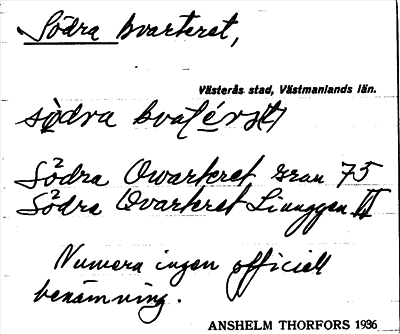 Södra kvarteret,
Västerås stad, Västmanlands län.
södra
Södra Qwarteret 75
Södra Qvarteret
Numera ingen officiell
benämning.
ANSHELM THORFORS 1936